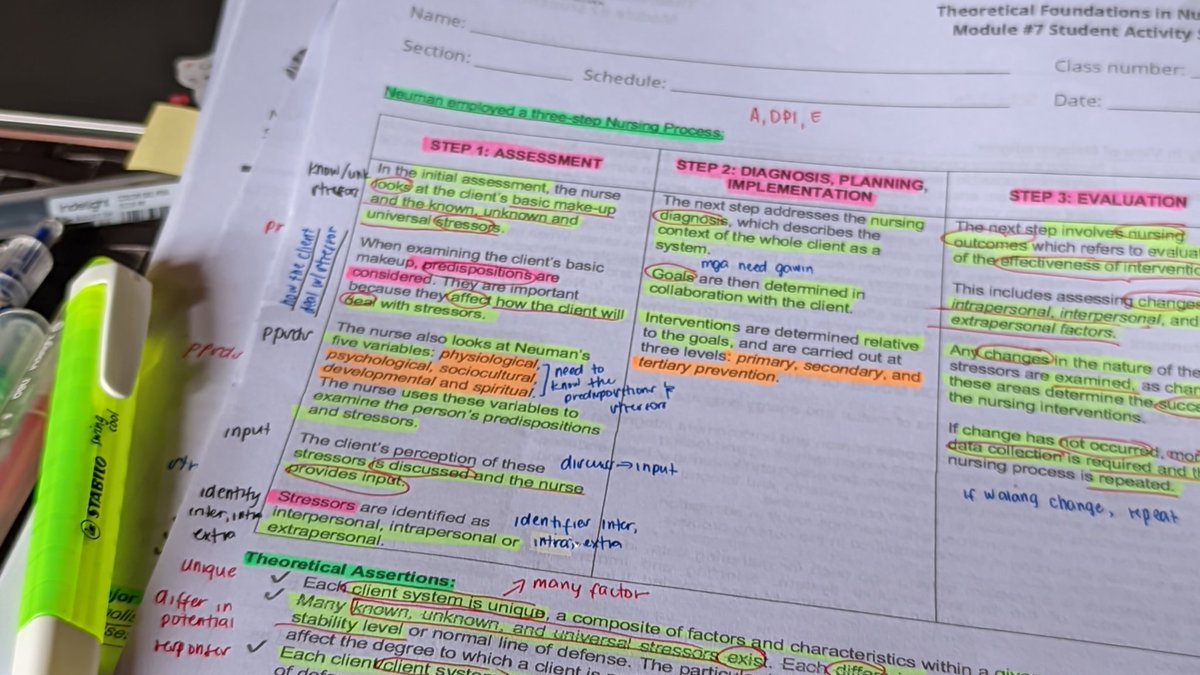 Theoretical Foundations in Nu
Module #7 Student Activity S
Name:
Class number:
Section:
Schedule:
Date:
Neuman employed a three-step Nursing Process.
A, DPI, E
STEP 1: ASSESSMENT
know/unk
stressor
In the initial assessment, the nurse
looks at the client's basic make-up
and the known, unknown and
universal stressors.
pr
how the client
deal w/ stressor
When examining the client's basic
makeup, predispositions are
considered. They are important
because they affect how the client will
deal with stressors.
ppsds
ppsds
The nurse also looks at Neuman's
five variables: physiological,
psychological, sociocultural,
developmental and spiritual.
need to
know the
predispositions &
stressors
The nurse uses these variables to
examine the person's predispositions
and stressors.
input
The client's perception of these
stressors is discussed and the nurse
provides input.
discuss → input
str
identify
inter, intra
extra
Stressors are identified as
interpersonal, intrapersonal or
extrapersonal.
identifier inter,
intra, extra
STEP 2: DIAGNOSIS, PLANNING,
IMPLEMENTATION
The next step addresses the nursing
diagnosis, which describes the
context of the whole client as a
system.
mga need gawin
Goals are then determined in
collaboration with the client.
Interventions are determined relative
to the goals, and are carried out at
three levels: primary, secondary, and
tertiary prevention.
STEP 3: EVALUATION
The next step involves nursing
outcomes which refers to evaluat
of the effectiveness of interventi
This includes assessing change
intrapersonal, interpersonal, and
extrapersonal factors.
Any changes in the nature of the
stressors are examined, as chan
these areas determine the succe
the nursing interventions.
If change has not occurred, mor
data collection is required and t
nursing process is repeated.
if walang change, repeat
Theoretical Assertions:
unique
Each client system is unique, a composite of factors and characteristics within a give
many factor
differ in
potential
Many known, unknown, and universal stressors exist. Each differ
stability level or normal line of defense. The particul
responser
affect the degree to which a client is
Each client/client system
of defe
STABILO
swing
cool